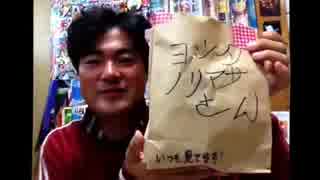 ヨシイ
ノリアサ
さん
いつも見てます!